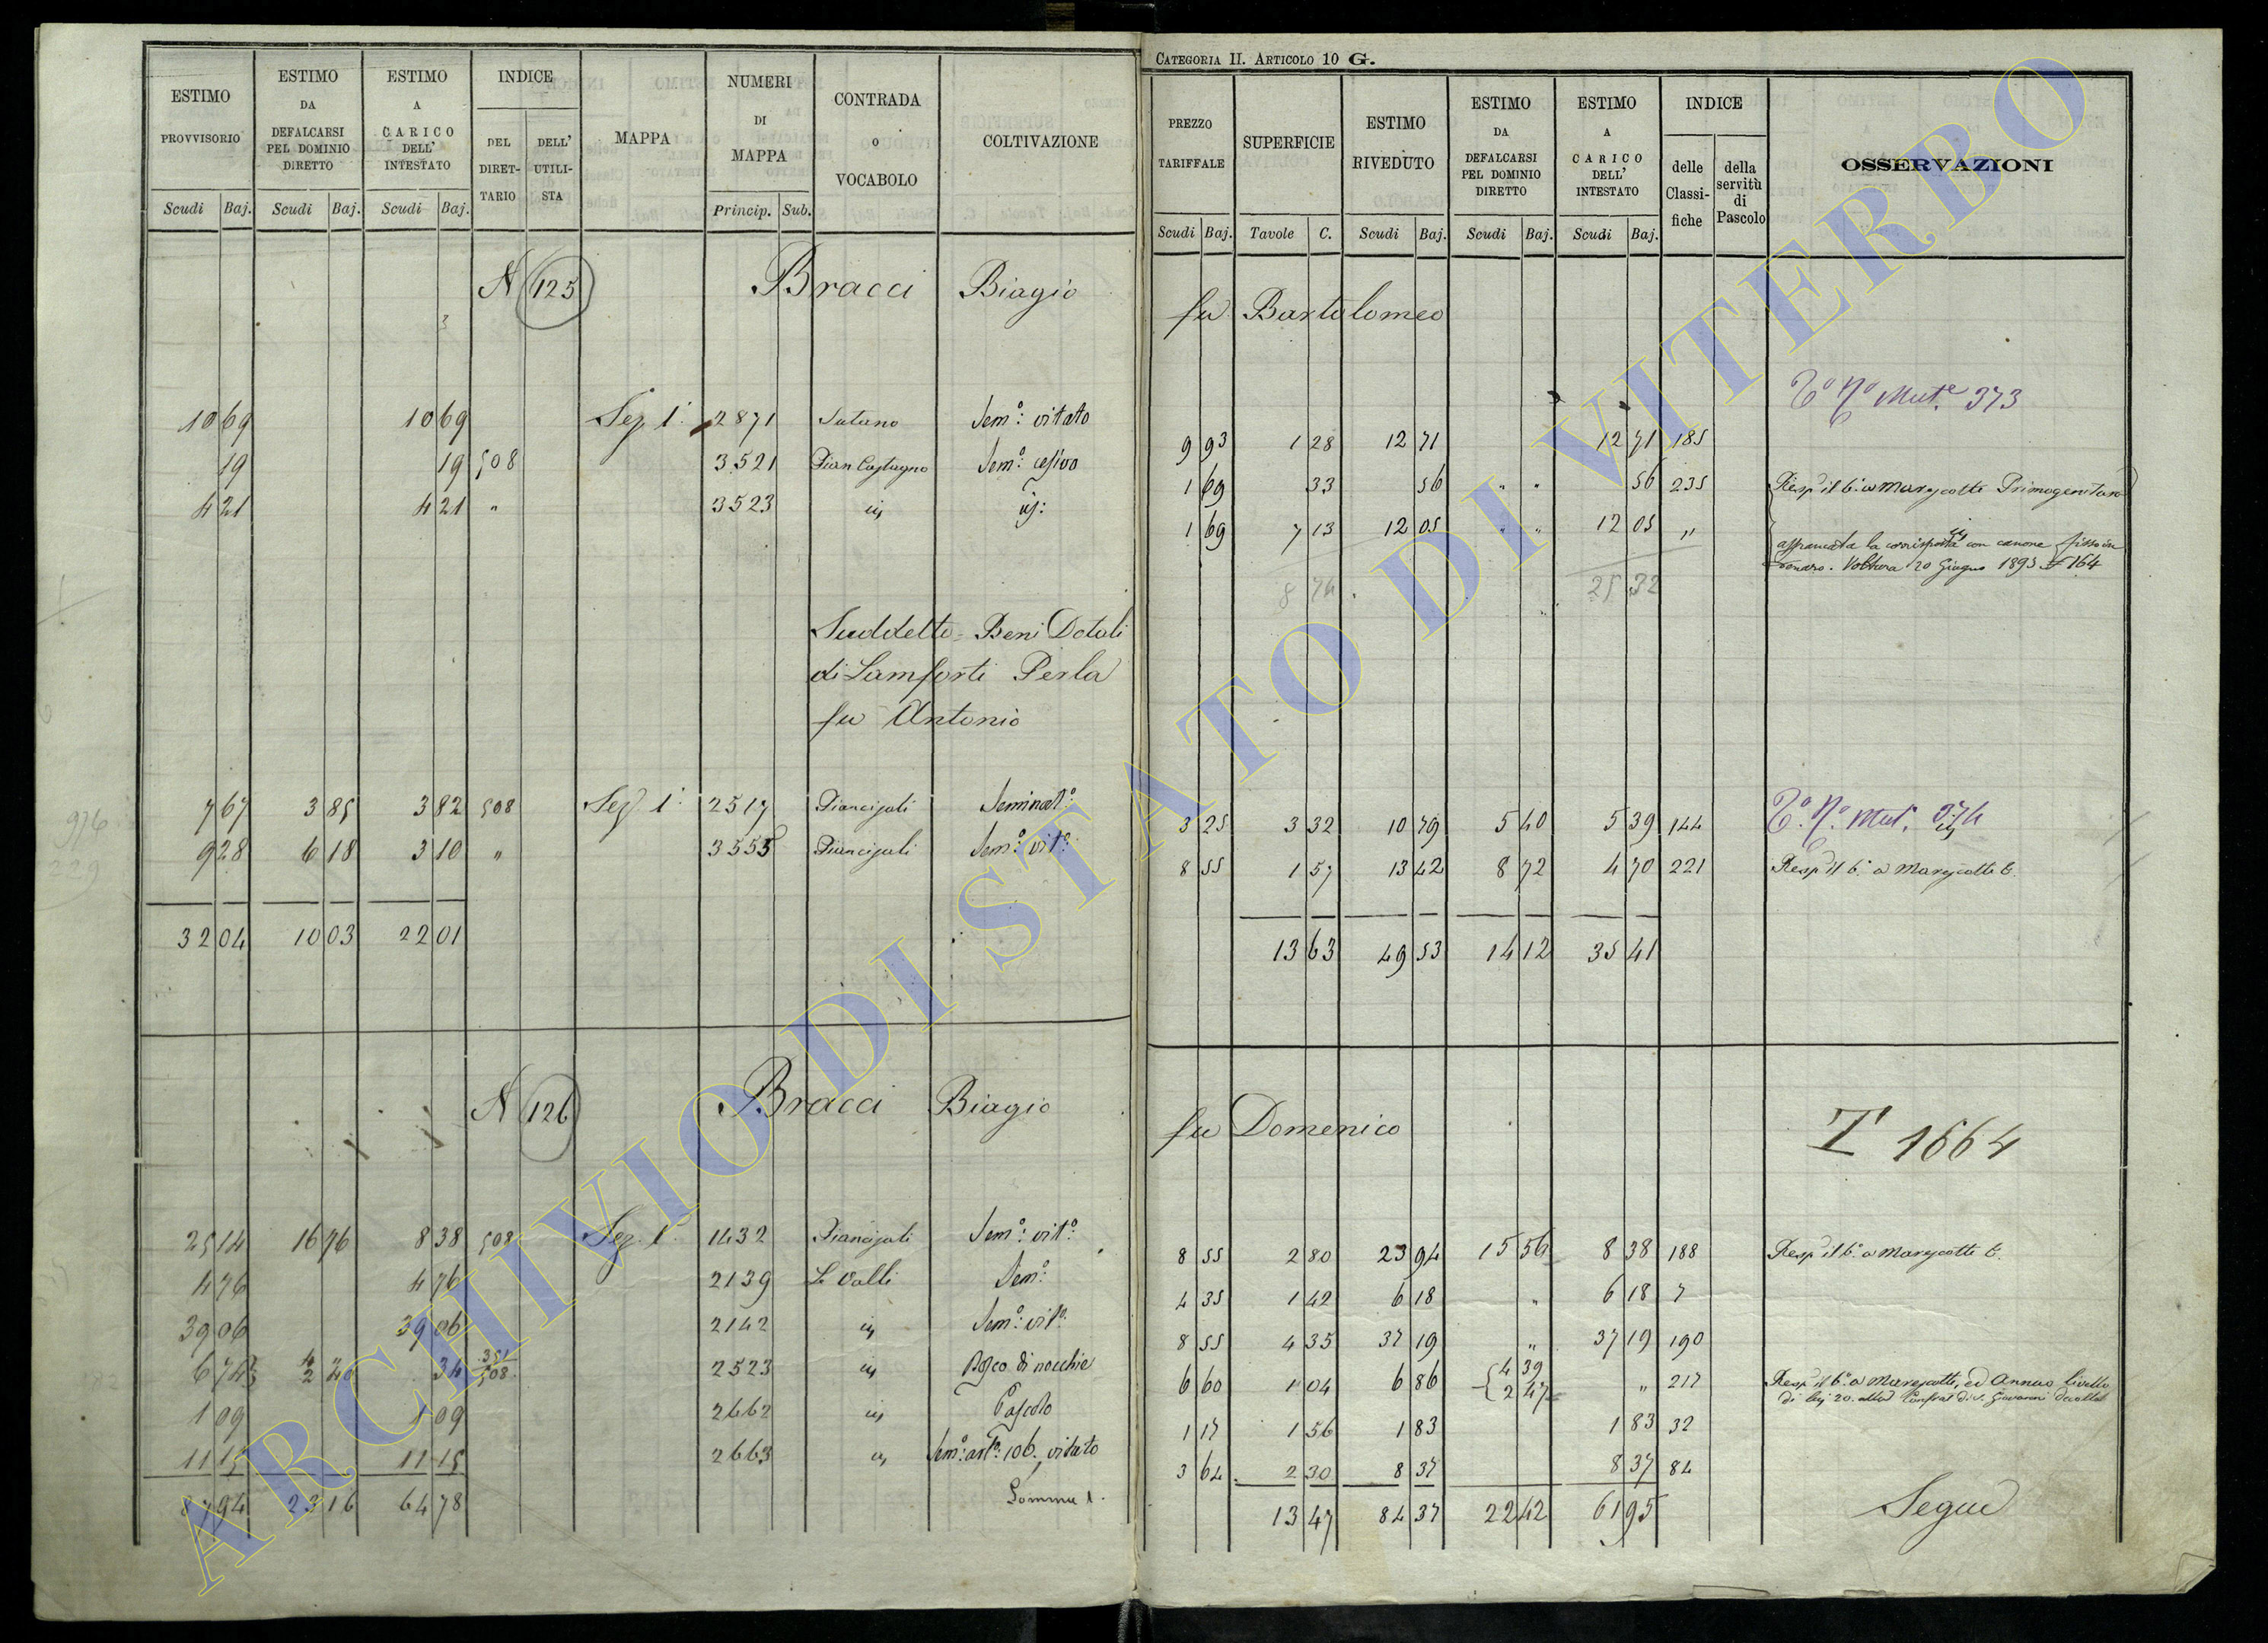 CATEGORIA II. ARTICOLO 10 G.
ESTIMO PROVVISORIO Scudi Baj.
ESTIMO DA DEFALCARSI PEL DOMINIO DIRETTO Scudi Baj.
ESTIMO A CARICO DELL' INTESTATO Scudi Baj.
INDICE DEL DIRET-TARIO DELL' UTILI-STA
MAPPA
NUMERI DI MAPPA Princip. Sub.
CONTRADA o VOCABOLO
COLTIVAZIONE
PREZZO TARIFFALE Scudi Baj.
SUPERFICIE Tavole C.
ESTIMO RIVEDUTO Scudi Baj.
ESTIMO DA DEFALCARSI PEL DOMINIO DIRETTO Scudi Baj.
ESTIMO A CARICO DELL' INTESTATO Scudi Baj.
INDICE delle Classi-fiche della servitù di Pascolo
OSSERVAZIONI
N 125 Bracci Biagio fu Bartolomeo
Mut.e 373
10 69 10 69 Sez 1ª 2871 Sutano Sem.o vitato 9 93 1 28 12 71 12 71 185
19 19 508 3521 Pian Castagno Sem.o 1 69 33 56 " " 56 235 Resp il 6.o a Marescotti Primogenitura
4 21 4 21 " 3523 1 69 7 13 12 05 " " 12 05 "
affrancata la corrisposta con canone fisso in
denaro. Voltura 20 Giugno 1893 164
8 74 25 32
Suddetto = Beni Dotali
di Lamforti Perla
fu Antonio
7 67 3 85 3 82 508 Sez. 1ª 2517 Piancisali Seminat.o 3 25 3 32 10 79 5 40 5 39 144 Mut.
9 28 6 18 3 10 " 3555 Piancisali Sem.o vit.o 8 55 1 57 13 42 8 72 4 70 221 Resp il 6.o a Marescotti
32 04 10 03 22 01 13 63 49 53 14 12 35 41
N 126 Bracci Biagio fu Domenico
T 1664
25 14 16 76 8 38 508 Sez. 1ª 1432 Piancisali Sem.o vit.o 8 55 2 80 23 94 15 56 8 38 188 Resp il 6.o a Marescotti
4 76 4 76 2139 Le Valli Sem.o 4 35 1 42 6 18 " 6 18 7
39 06 39 06 2142 Sem.o vit.o 8 55 4 35 37 19 " 37 19 190
6 74 34 351 508 2523 Bosco di nocchie 6 60 1 04 6 86 4 39 2 47 " 217 Resp il 6.o a Marescotti, ed Annuo livello
di baj 20. alla S. Giovanni Decollato
1 09 1 09 2662 Pascolo 1 17 1 56 1 83 1 83 32
11 15 11 15 2663 Sem.o vitato 3 64 2 30 8 37 8 37 84
87 94 23 16 64 78 Somma 13 47 84 37 22 42 61 95 Segue
ARCHIVIO DI STATO DI VITERBO